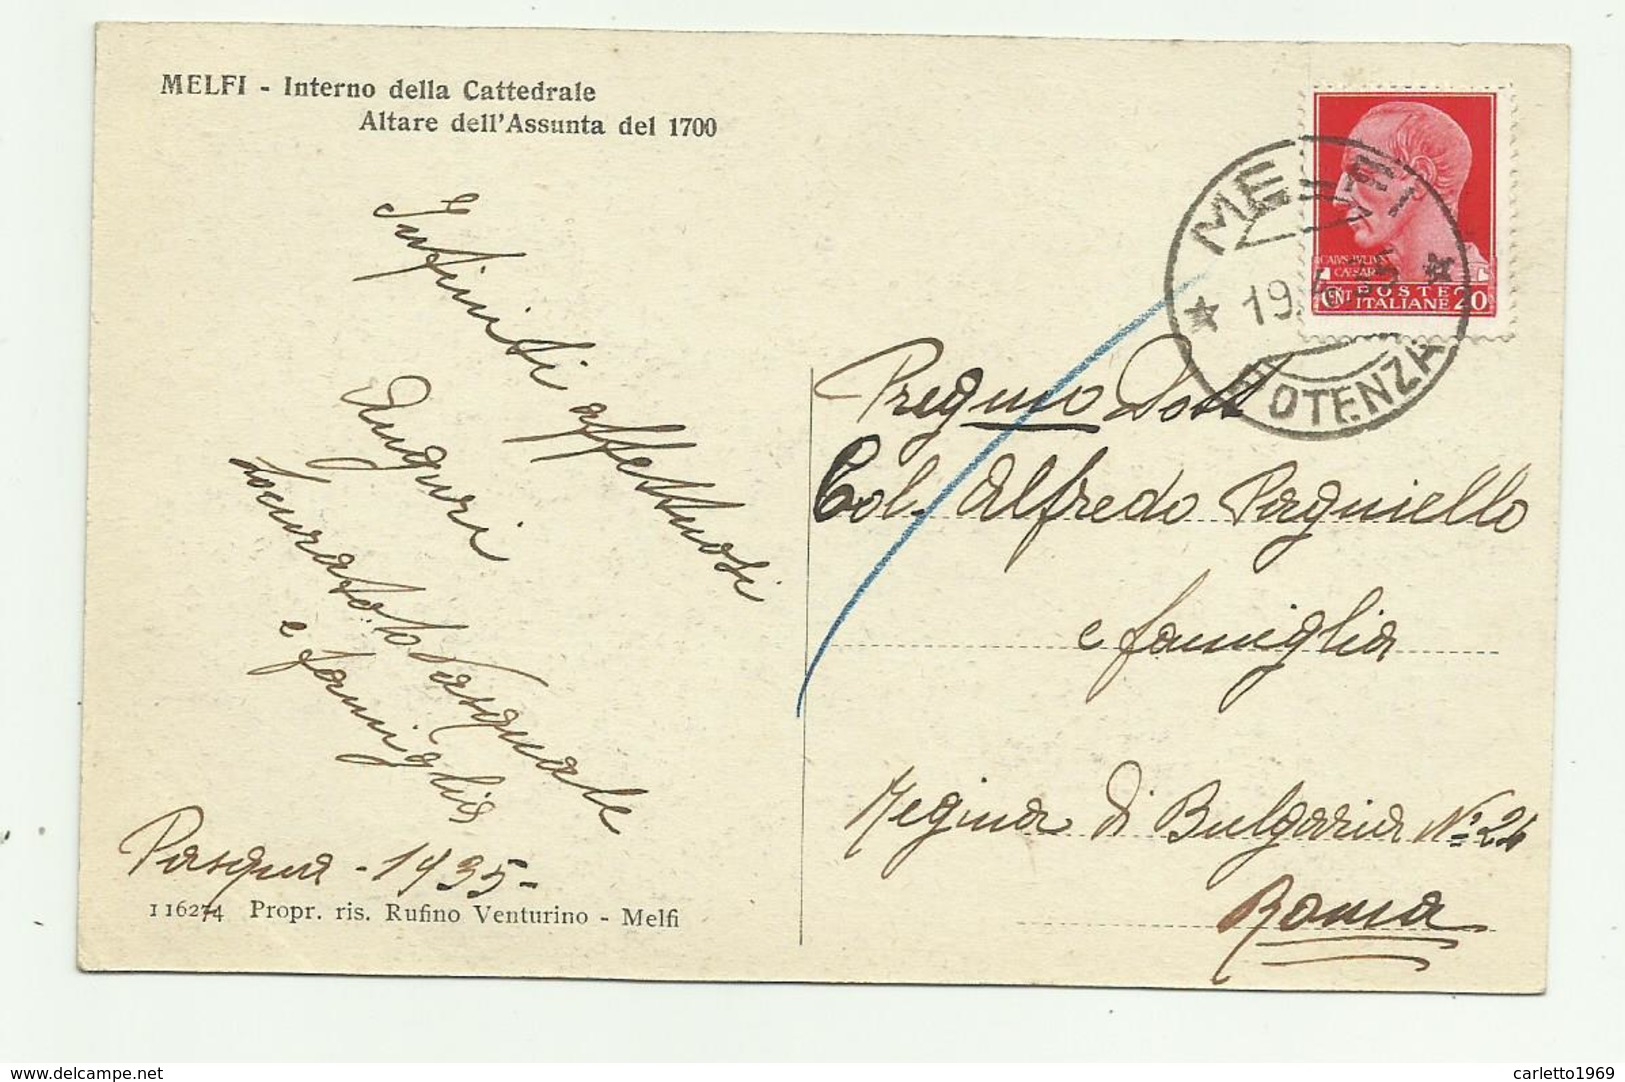 MELFI - Interno della Cattedrale
Altare dell'Assunta del 1700
Infiniti affettuosi
Auguri
Pasquale
e famiglia
Pasqua - 1935 -
116274 Propr. ris. Rufino Venturino - Melfi
MELFI
19.4.35
POTENZA
CAIVS·IVLIVS
CAESAR
CENT POSTE 20
ITALIANE
Pregmo Dott
Col. Alfredo Pagniello
e famiglia
Regina di Bulgaria No 24
Roma
delcampe.net
carletto1969